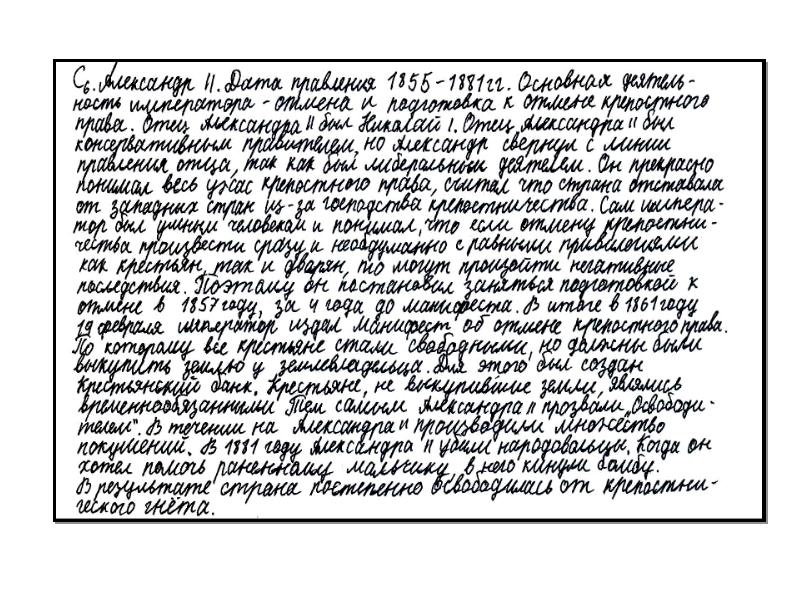 С6. Александр II. Дата правления 1855-1881гг. Основная деятель-
ность императора - отмена и подготовка к отмене крепостного
права. Отец Александра II был Николай I. Отец Александра II был
консервативным правителем, но Александр свернул с линии
правления отца, так как был либеральным деятелем. Он прекрасно
понимал весь ужас крепостного права, считал что страна отставала
от западных стран из-за господства крепостничества. Сам импера-
тор был умный человеком и понимал, что если отмену крепостни-
чества произвести сразу и необдуманно с равными привилегиями
как крестьян, так и дварян, то могут произойти негативные
последствия. Поэтому он постановил заняться подготовкой к
отмене в 1857 году, за 4 года до манифеста. В итоге в 1861 году
19 февраля император издал манифест об отмене крепостного права.
По которому все крестьяне стали свободными, но должны были
выкупить землю у землевладельца. Для этого был создан
Крестьянский банк. Крестьяне, не выкупившие земли, являлись
временнообязанными. Тем самым Александра II прозвали "Освободи-
телем". В течении на Александра II производили множество
покушений. В 1881 году Александра II убили народовольцы. Когда он
хотел помочь раненному мальчику, в него кинули бомбу.
В результате страна постепенно освободилась от крепостни-
ческого гнёта.